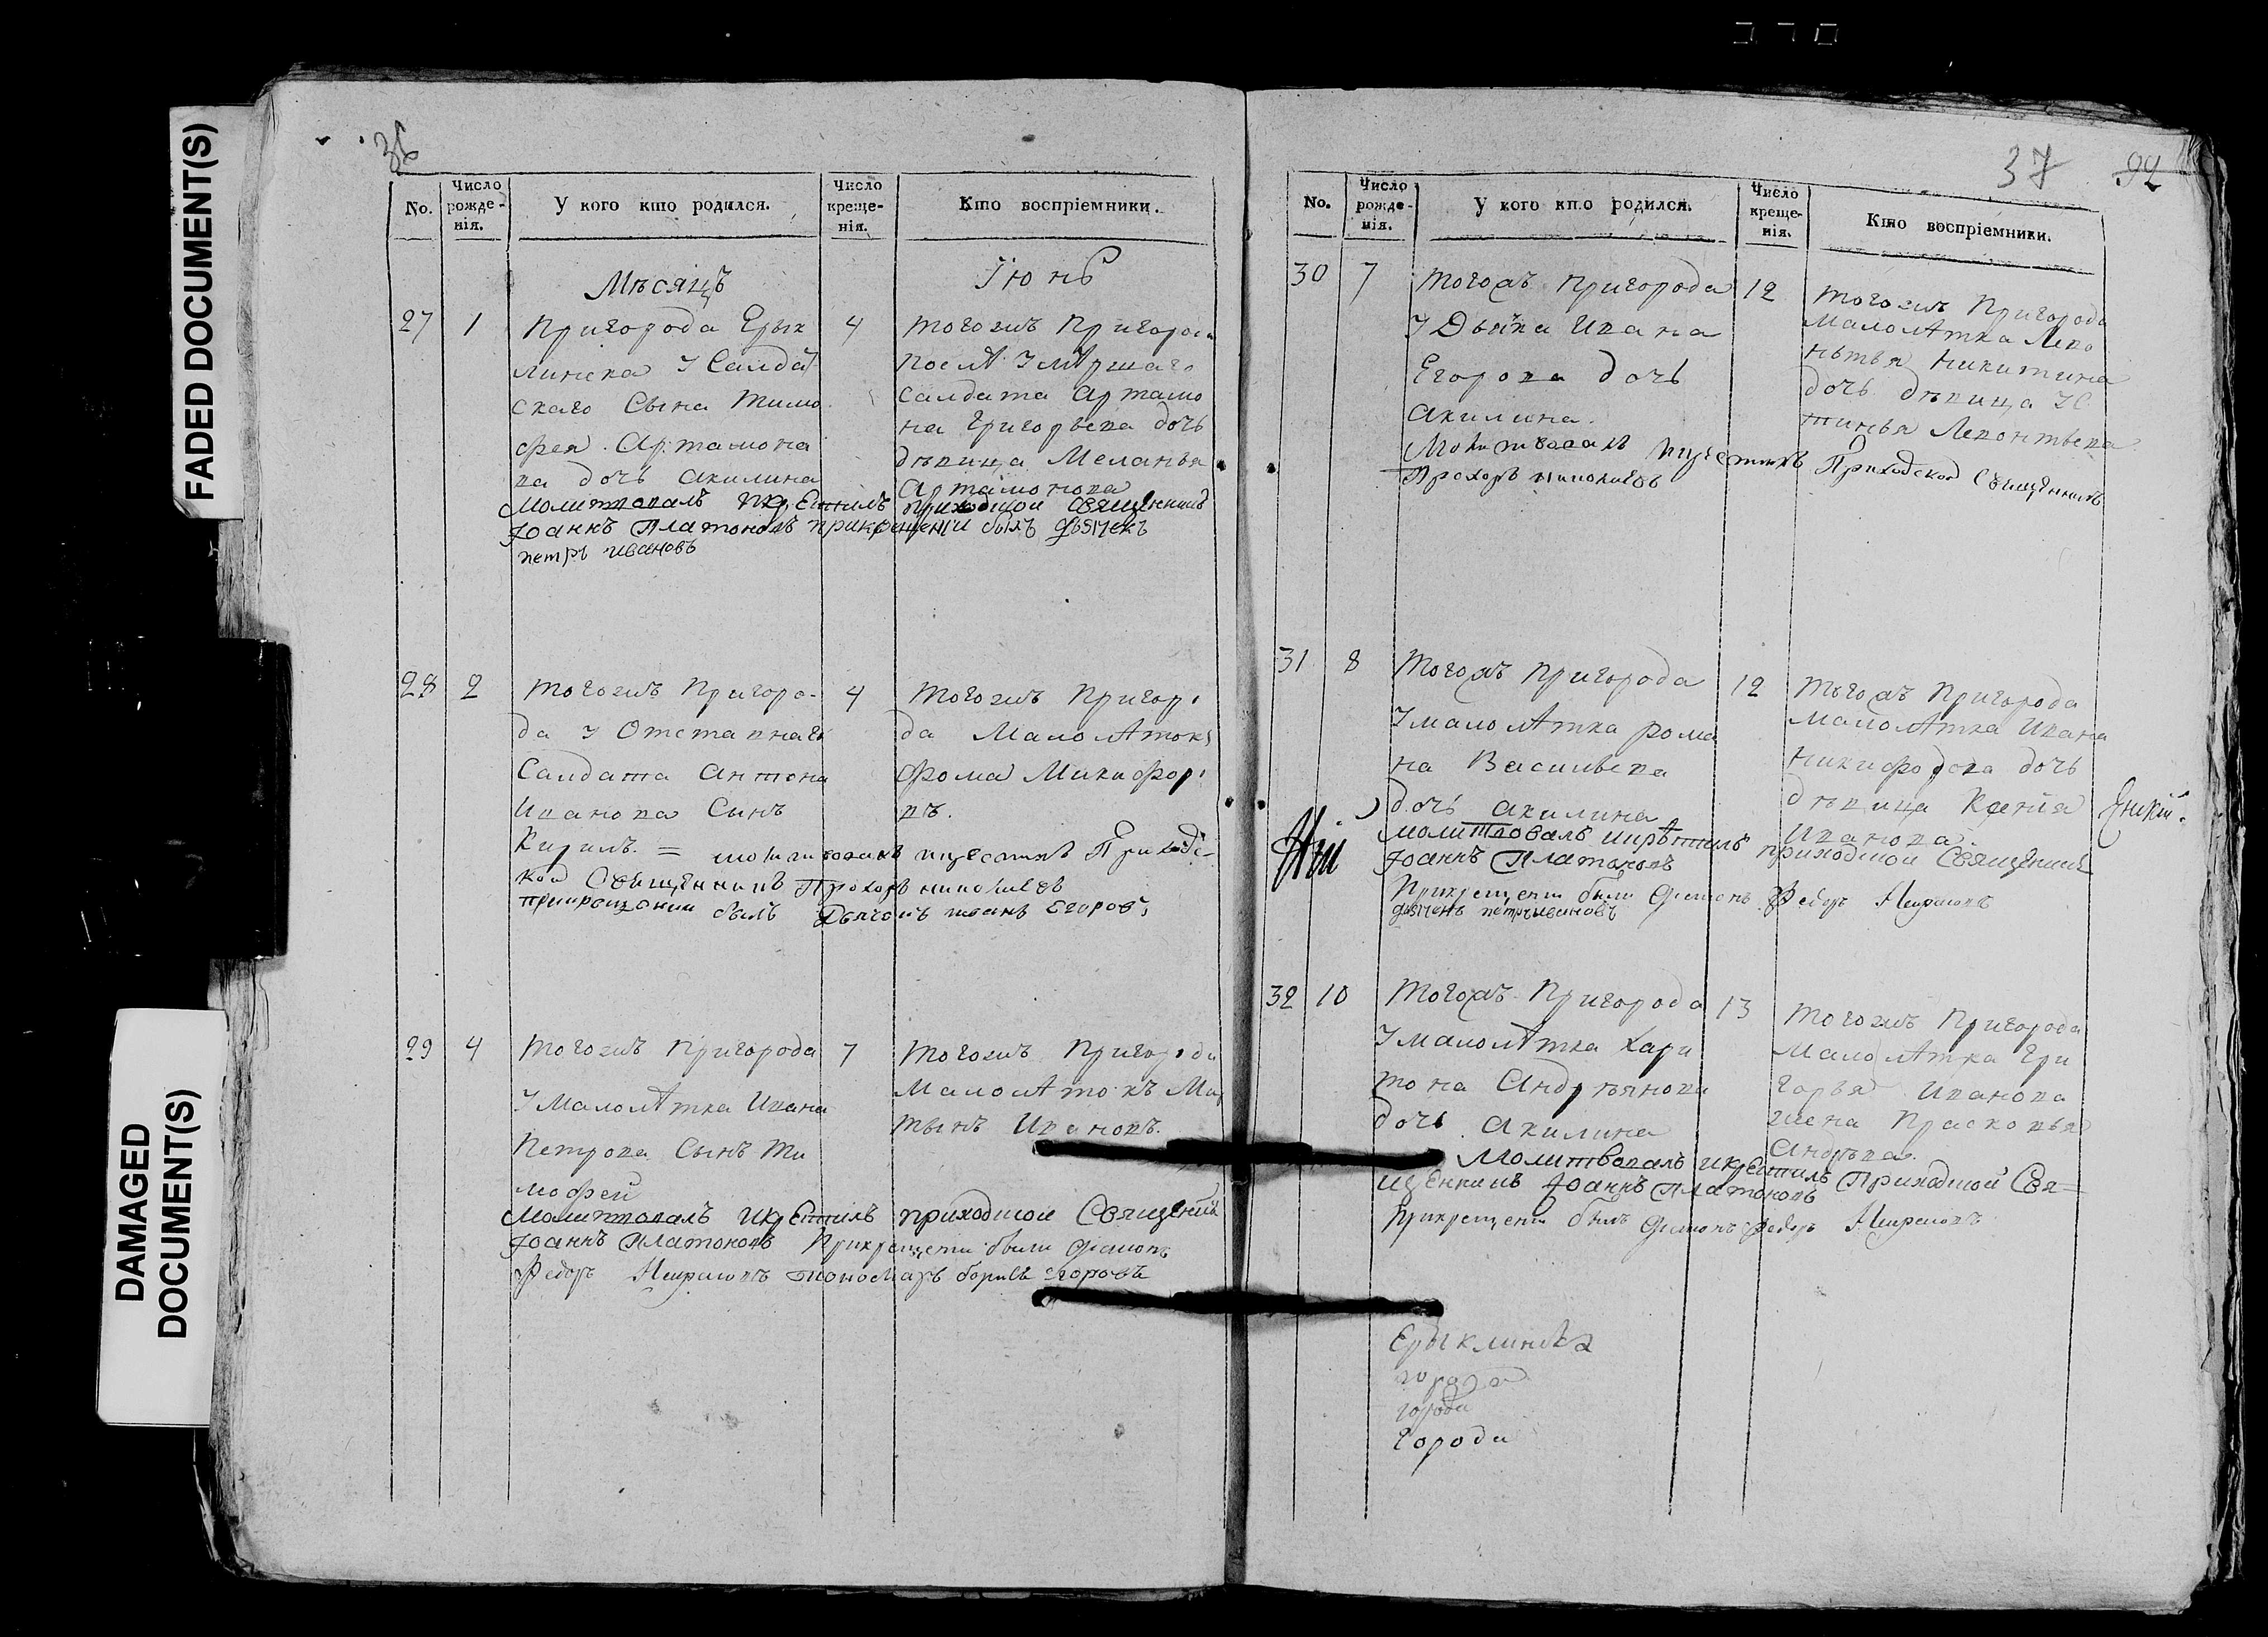 FADED DOCUMENT(S)
DAMAGED
DOCUMENT(S)
36
No.
Число рожде-нія.
У кого кто родился.
Число креще-нія.
Кто воспріемники.
Мѣсяцъ
Іюнь
27
1
Пригорода Ерык
линска У Салдат
скаго Сына Тимо
фея Артамоно
ва дочь акилина
4
тогожъ Пригоро
послѣ Умѣршаго
Салдата Артамо
на Григорьева дочь
дѣвица Меланья
Артамонова
Молитвовалъ икрЕстилъ приходской Священникъ
Јоаннъ Платоновъ прикрещеніи былъ дьячекъ
петръ ивановъ
28
2
тогожъ Пригоро-
да У Отставнаго
Салдата Антона
Иванова Сынъ
Кирилъ. =
4
тогожъ Пригор
да Малолѣтокъ
Фома Микифор
въ.
молитвовалъ икрестилъ Приходс-
кой Священникъ Прохоръ
прикрощении былъ Дьячокъ иванъ Егоровъ
29
4
тогожъ Пригорода
У Малолѣтка Ивана
Петрова Сынъ Ти
мофей
7
тогожъ Пригорода
Малолѣтокъ Мар
тынъ Ивановъ.
Молитвовалъ икрЕстилъ приходской Священникъ
Јоаннъ Платоновъ Прикрещети были
Федоръ пономарь борисъ егоровъ
37
92
No.
Число рожде-нія.
У кого кто родился.
Число креще-нія.
Кто воспріемники.
30
7
тогожъ Пригорода
У Дьячка Ивана
Егорова дочь
акилина.
12
тогожъ Пригорода
малолѣтка Лево
нтья Никитина
дочь дѣвица Ус
тинья Левонтьева
Молитвовалъ икрестилъ Приходской Священникъ
Прохоръ
31
8
тогожъ Пригорода
У малолѣтка рома
на Васильева
дочь акилина
12
тогожъ Пригорода
малолѣтка Ивана
Никифорова дочь
дѣвица Ксения
Иванова.
молитвовалъ икрѣстилъ приходской Священникъ
Јоаннъ Платоновъ
Прикрещети были Федоръ
дьячекъ петръ ивановъ
32
10
тогожъ Пригорода
У малолѣтка Хари
тона Андреянова
дочь Акилина
13
тогожъ Пригорода
Малолѣтка Гри
горья Иванова
жена Прасковья
Андрѣва.
Молитвовалъ икрЕстилъ Приходской Свя=
щЕнникъ Јоаннъ Платоновъ
Прикрещети былъ Федоръ
Ерыклинска
города
города
города